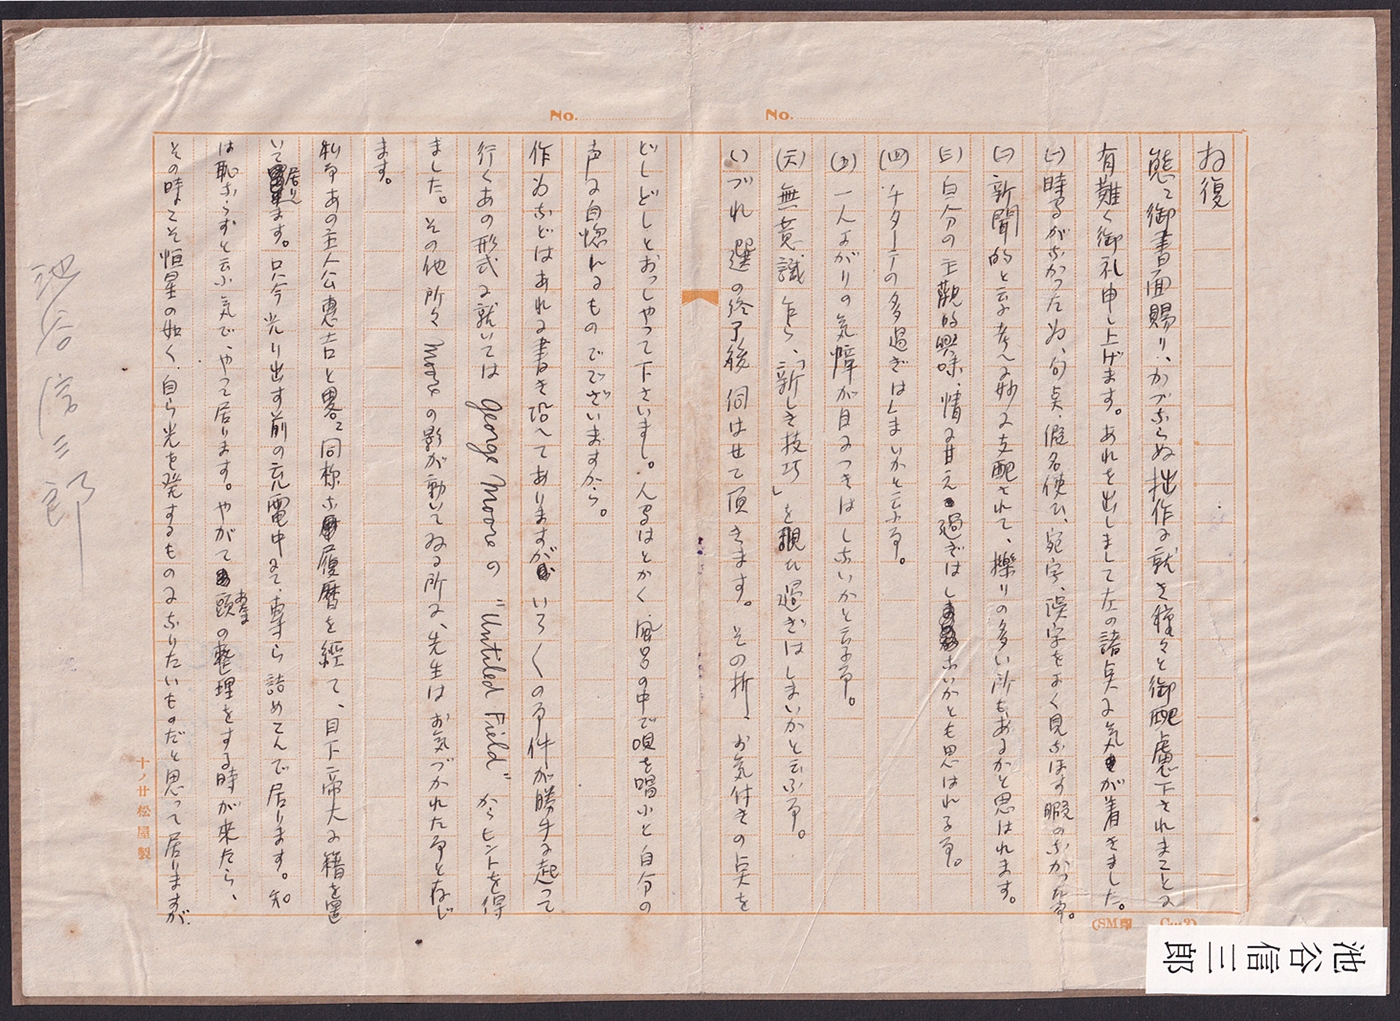 お復
態々御書面賜り、かづならぬ拙作に就き種々と御配慮下されまことに
有難く御礼申し上げます。あれを出しまして左の諸点に気が着きました。
(一)時間がなかった為、句点、假名使ひ、宛字、誤字をよく見なほす暇のなかった事。
(二)新聞的と云ふ考へに妙に支配されて、擽りの多い所もあるかと思はれます。
(三)自分の主観的興味、情に甘え過ぎはしないかとも思はれる事。
(四)チタームの多過ぎはしまいかと云ふ事。
(五)一人よがりの気障が目につきはしないかと云ふ事。
(六)無意識乍ら、「新しき技巧」を覗ひ過ぎはしまいかと云ふ事。
いづれ選の終了後伺はせて頂きます。その折、お気付きの点を
どしどしとおっしゃって下さいまし。人間はとかく風呂の中で唄を唱ふと自分の
声に自惚れるものでございますから。
作為などはあれに書き添へてありますが いろ〱の事件が勝手に起って
行くあの形式に就いては George Moore の "Untilled Field" からヒントを得
ました。その他所々 の影が動いてゐる所に、先生はお気づかれた事と存じ
ます。
私もあの主人公惠吉と畧々同様な履歴を経て、目下帝大に籍を置
いて居ります。只今光り出す前の充電中にて、専ら詰めこんで居ります。知
は恥ならずと云ふ気で、やって居ります。やがて頭の整理をする時が来たら、
その時こそ恒星の如く、自ら光を発するものになりたいものだと思って居りますが、
池谷信三郎
No.
No.
十ノ廿松屋製
(SM印
池谷信三郎